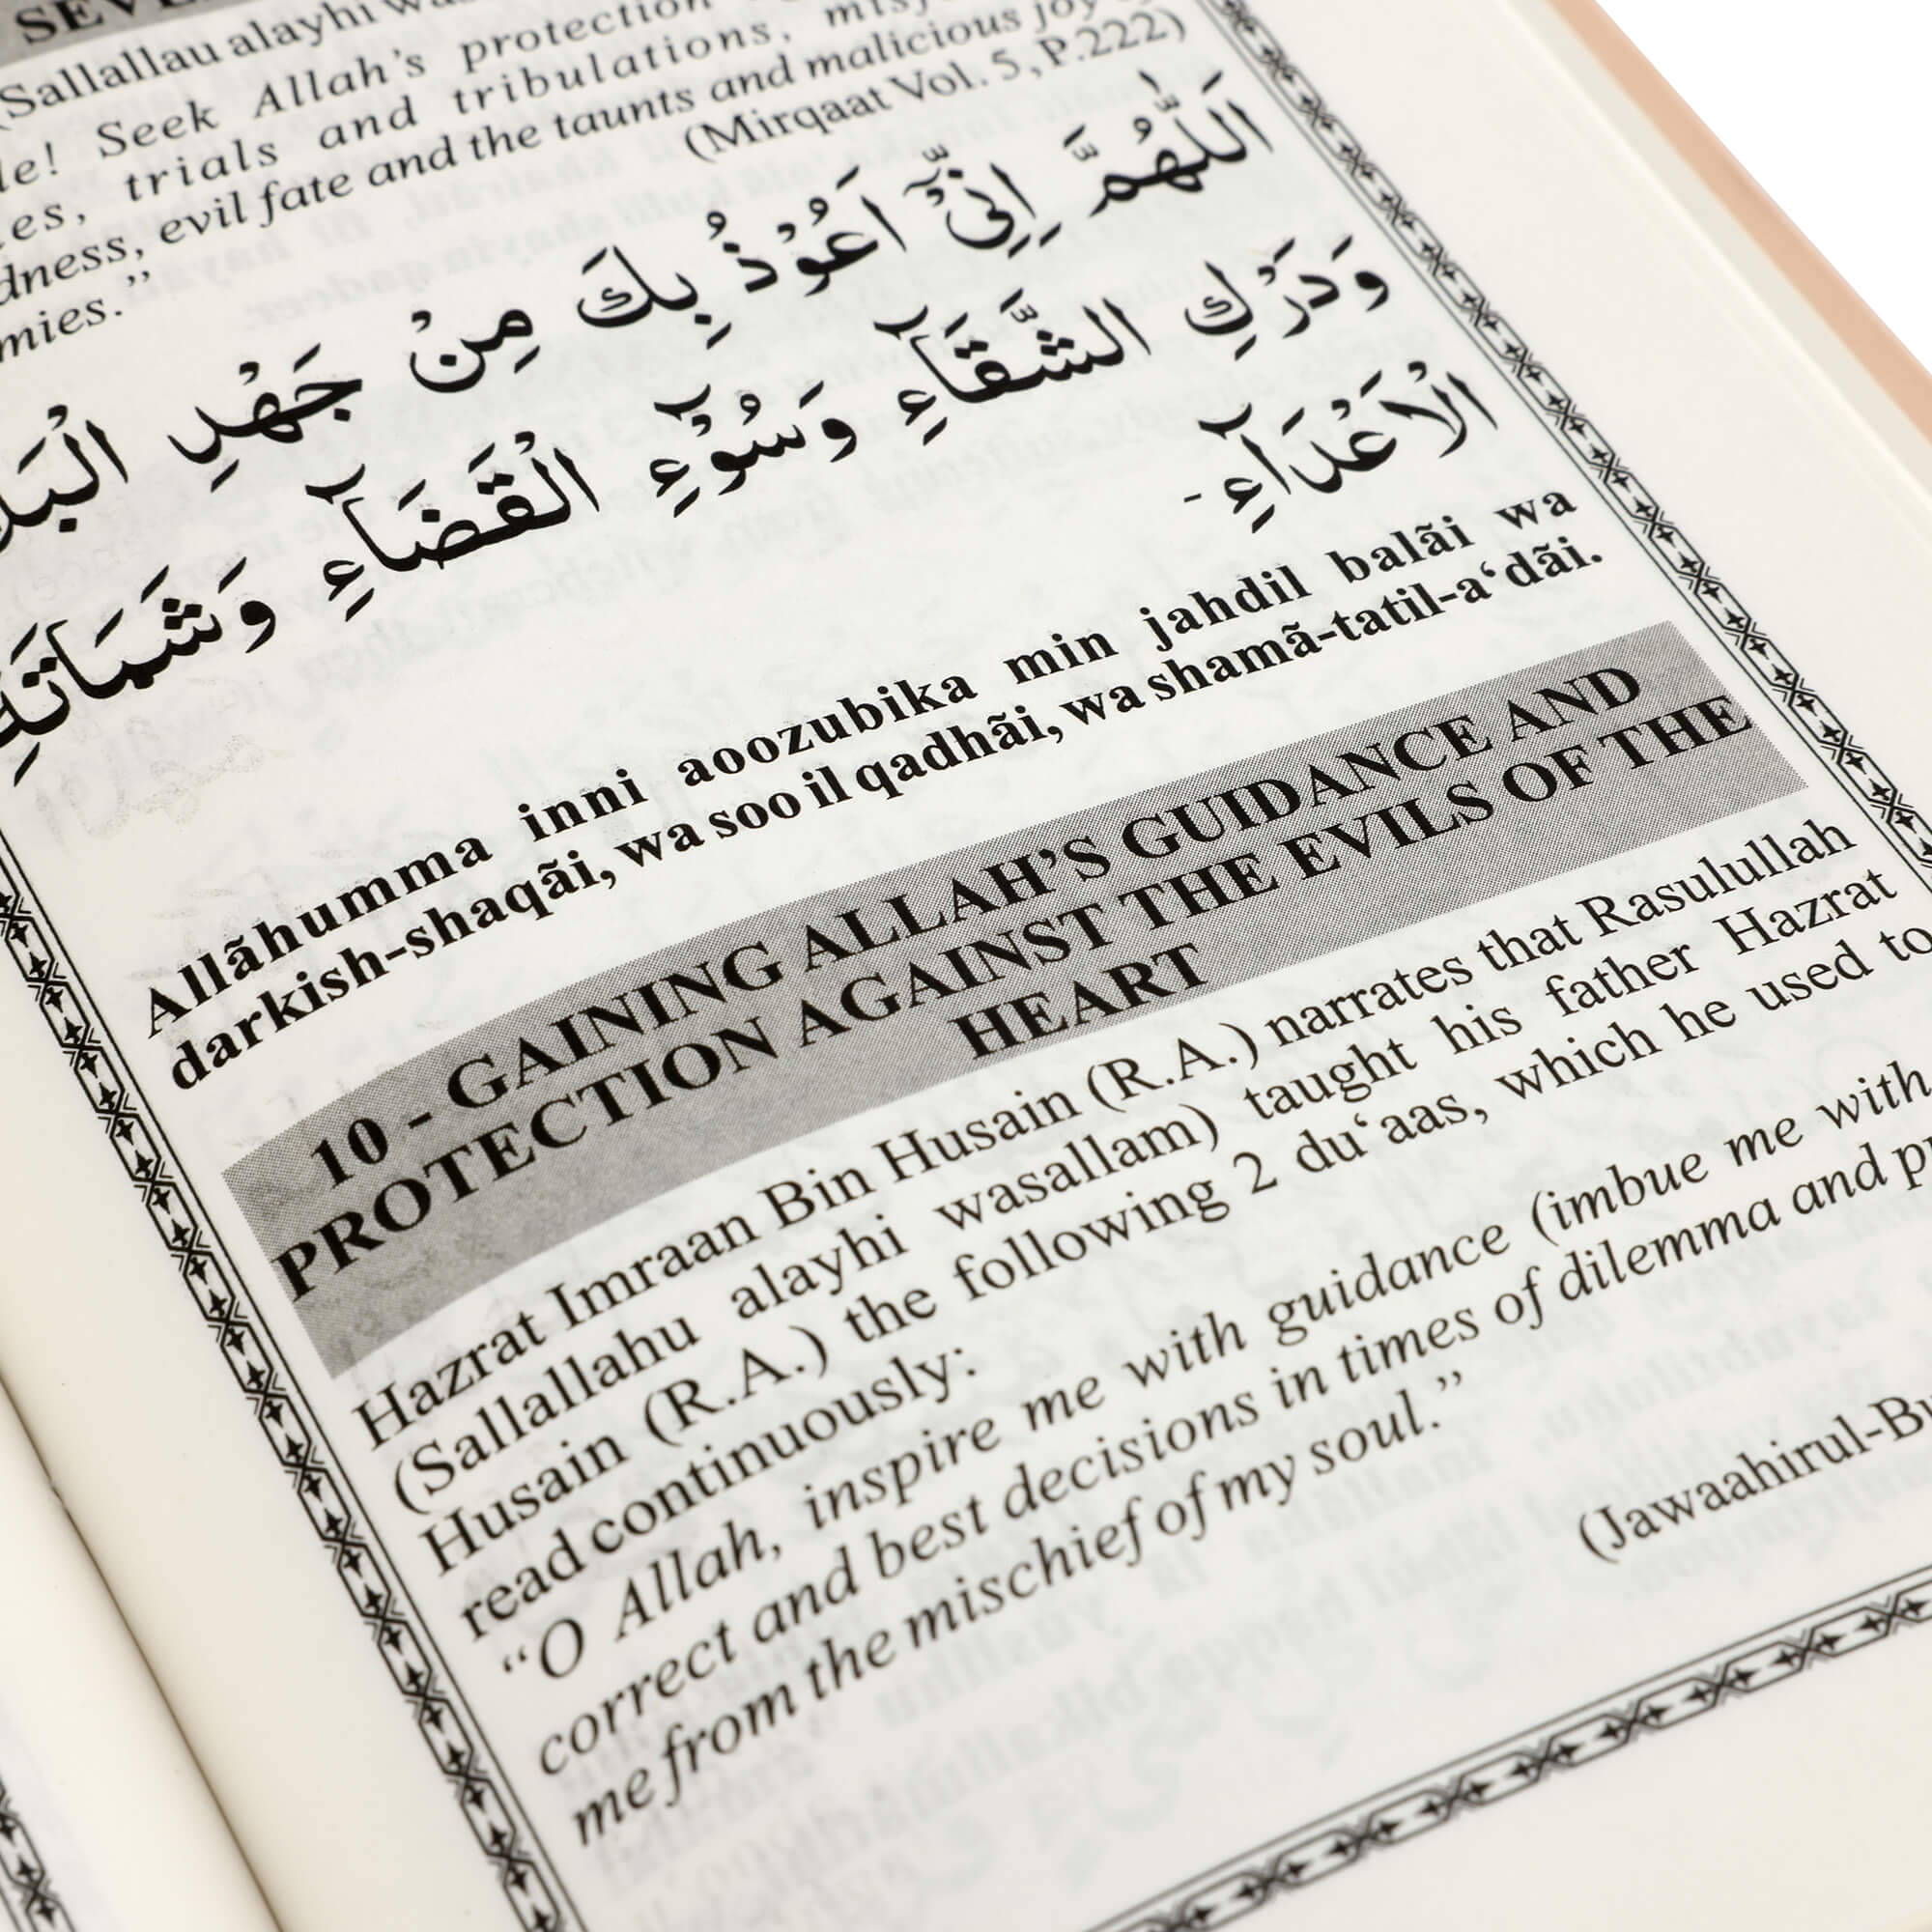 SEVE
(Sallallau alayhi
le! Seek Allah’s protection
es, trials and tribulations,
dness, evil fate and the taunts and malicious joy
mies.”
(Mirqaat Vol. 5, P.222)
اَللّٰهُمَّ اِنِّىْۤ اَعُوْذُ بِكَ مِنْ جَهْدِ الْبَلَ
وَدَرْكِ الشَّقَآءِ وَسُوْٓءِ الْقَضَآءِ وَشَمَاتَةِ
الْاَعْدَآءِ -
Allãhumma inni aoozubika min jahdil balãi wa
darkish-shaqãi, wa soo il qadhãi, wa shamã-tatil-a‘dãi.
10 - GAINING ALLAH’S GUIDANCE AND
PROTECTION AGAINST THE EVILS OF THE
HEART
Hazrat Imraan Bin Husain (R.A.) narrates that Rasulullah
(Sallallahu alayhi wasallam) taught his father Hazrat
Husain (R.A.) the following 2 du‘aas, which he used to
read continuously:
“O Allah, inspire me with guidance (imbue me with
correct and best decisions in times of dilemma and
me from the mischief of my soul.”
(Jawaahirul-Bu